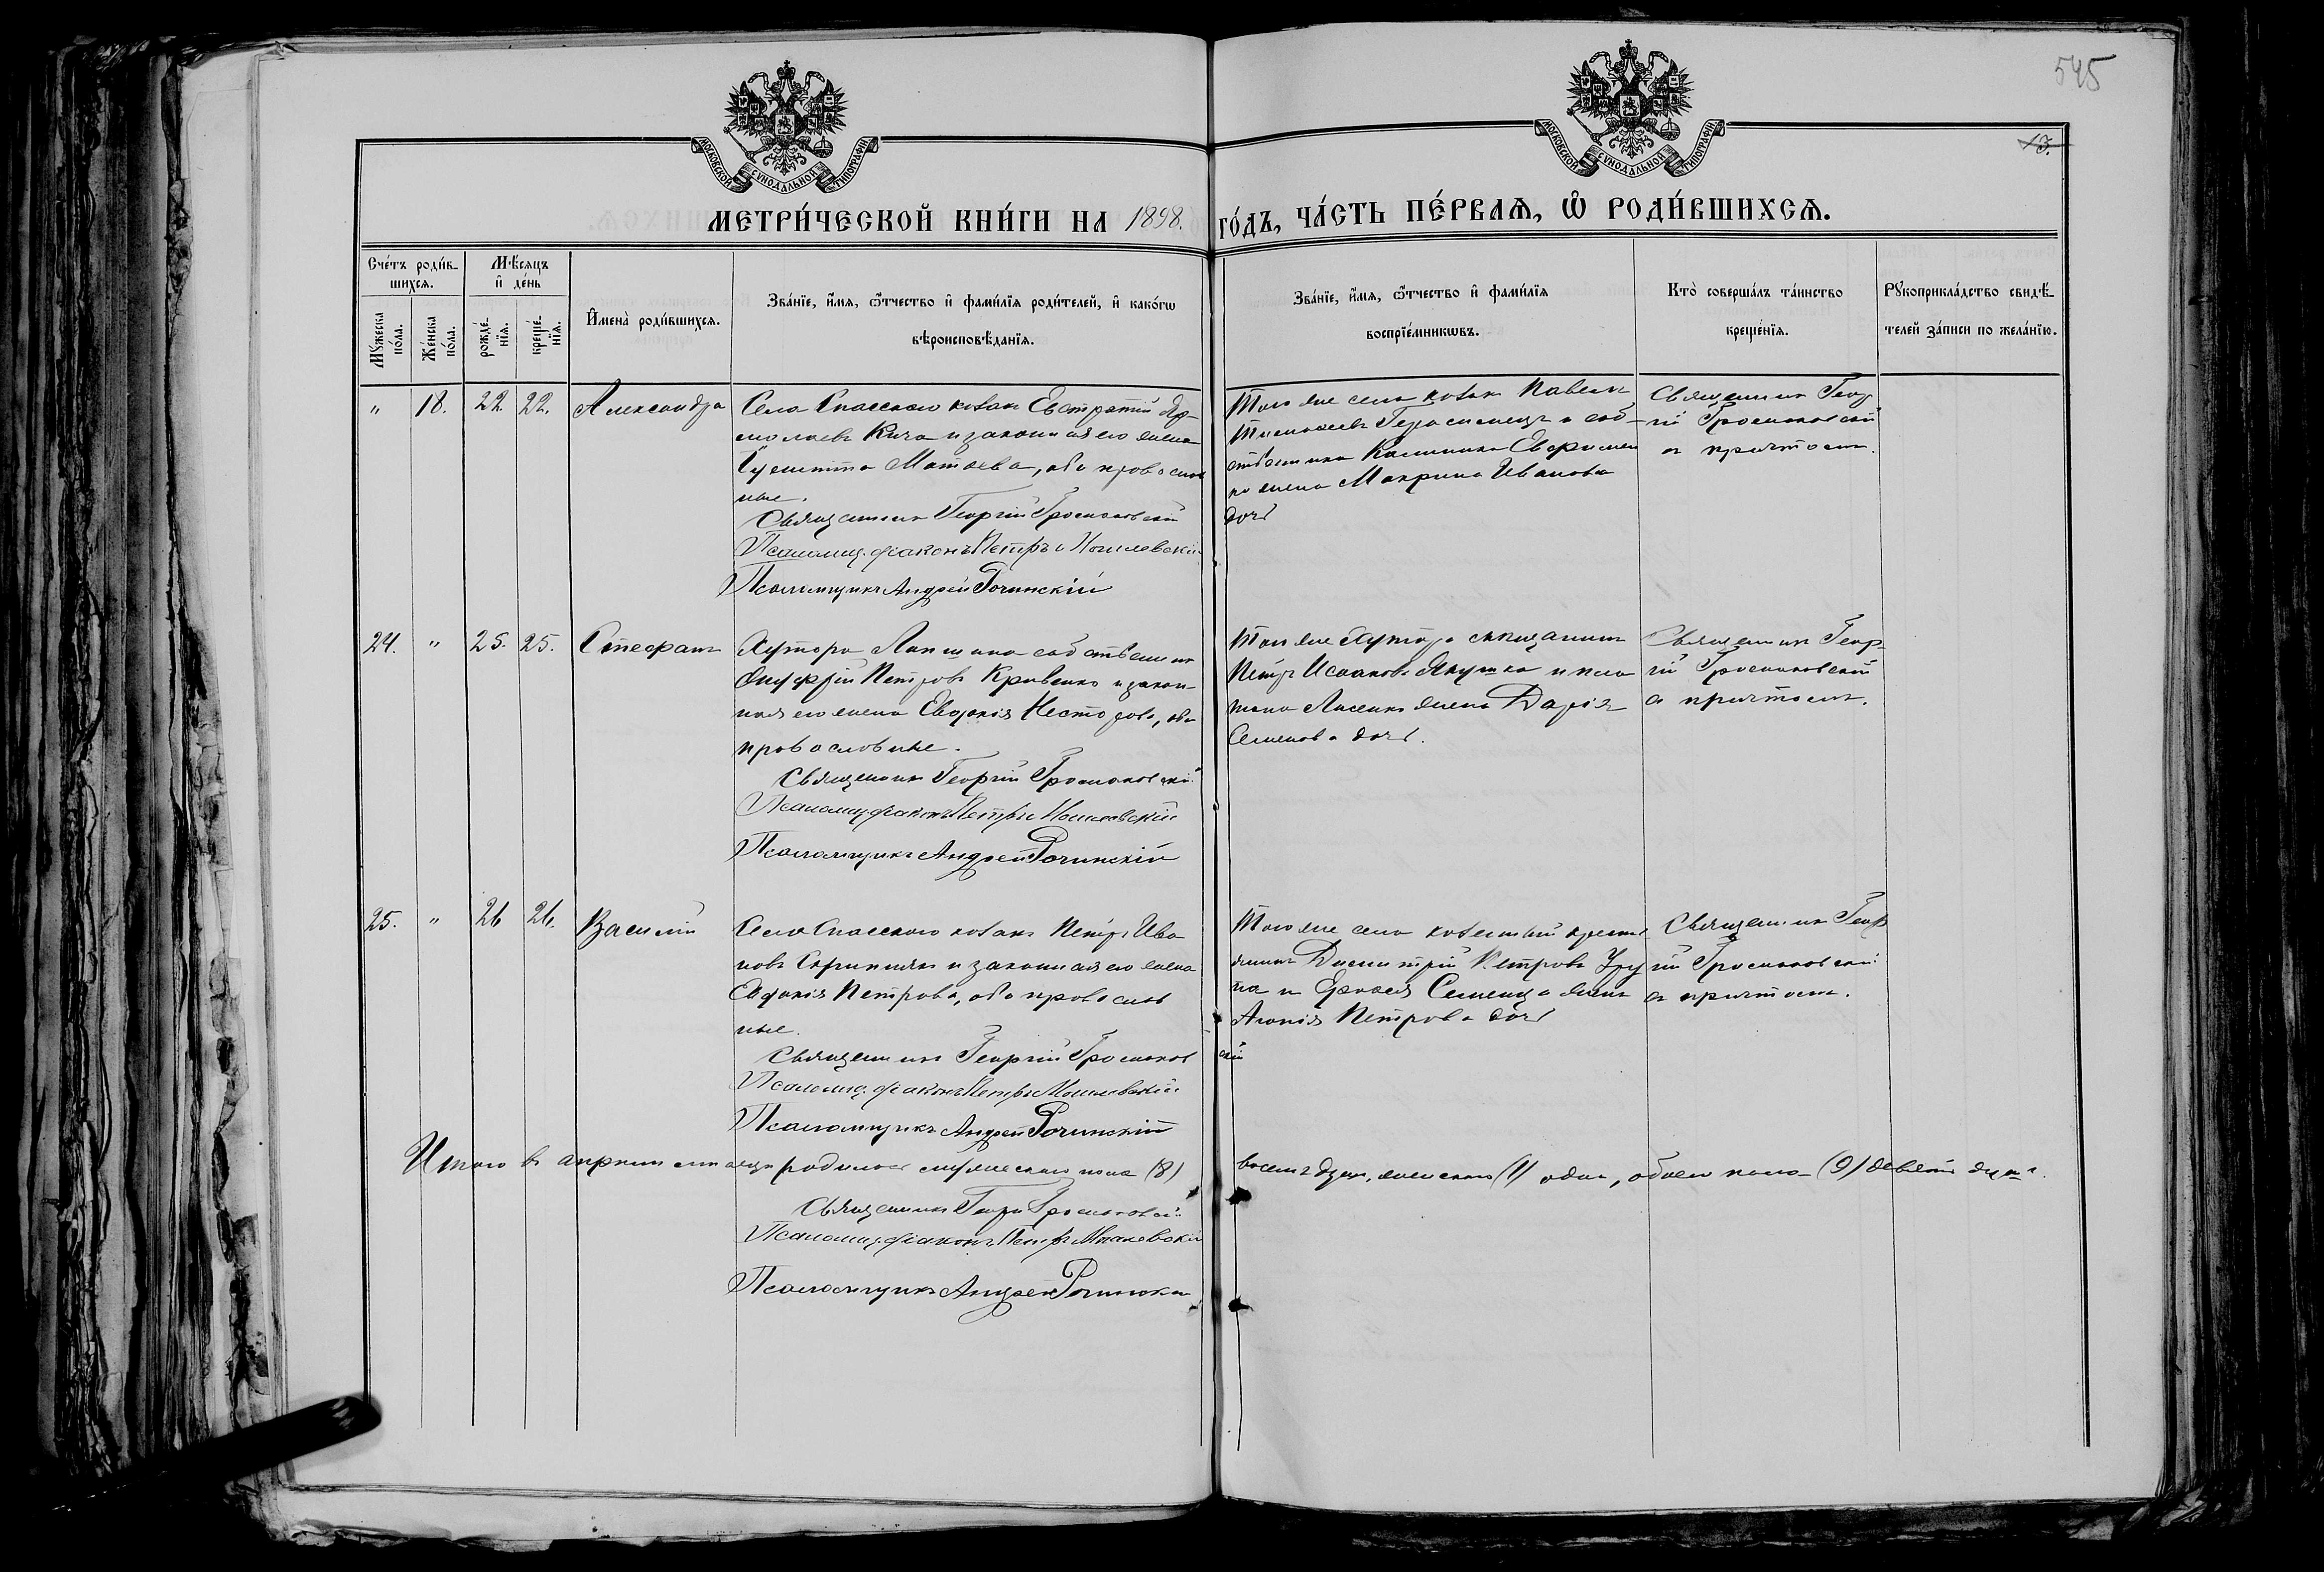 545
13.
МОСКОВСКОЙ СѴНОДАЛЬНОЙ ТИПОГРАФІИ
МОСКОВСКОЙ СѴНОДАЛЬНОЙ ТИПОГРАФІИ
МЕТРИ́ЧЕСКОЙ КНИ́ГИ НА 1898. ГО́ДЪ, ЧА́СТЬ ПЕ́РВАѦ, Ѽ РОДИ́ВШИХСѦ.
Сче́тъ роди́в-
шихсѧ.
Мꙋ́жеска по́ла.
Же́нска по́ла.
Мѣ́сѧцъ
и҆ де́нь
рожде́-
нїѧ.
креще́-
нїѧ.
И҆мена̀ роди́вшихсѧ.
Зва́нїе, и҆́мѧ, ѻ҆́тчество и҆ фами́лїѧ роди́телей, и҆ како́гѡ
вѣроисповѣ́данїѧ.
Зва́нїе, и҆́мѧ, ѻ҆́тчество и҆ фами́лїѧ
воспрїе́мникѡвъ.
Кто̀ соверша́лъ та́инство
креще́нїѧ.
Рꙋкоприкла́дство свидѣ́-
телей за́писи по жела́нїю.
" 18. 22. 22. Александра
Села Спасского козакъ Евстратій Ер-
молаевъ Кича и законная его жена
Матѳеева, оба православ
ные.
Священникъ Георгій Громаковскій
Псаломщ. діаконъ Петръ Могилевскій
Псаломщикъ Андрей Рочинскій
Того же села козакъ Павелъ
Тимоѳеевъ Герасименко и соб-
ственника Калинника
жена Макрина Иванова
дочь
Священникъ Геор
гій Громаковскій
съ причтомъ.
24. " 25. 25. Стефанъ
Хутора Лапшина собственникъ
Онуфрій Петровъ Кривенко и закон-
ная его жена Евдокія Несторова, оба
православные.
Священникъ Георгій Громаковскій
Псаломщ. діаконъ Петръ Могилевскій
Псаломщикъ Андрей Рочинскій
Того же хутора мѣщанинъ
Петръ Исааковъ Якушко и
Лисенко жена Дарія
Семенова дочь.
Священникъ Геор-
гій Громаковскій
съ причтомъ.
25. " 26 26. Василій
Села Спасского козакъ Петръ Ива
новъ Скрипникъ и законная его жена
Евдокія Петрова, оба православ
ные.
Священникъ Георгій Громаковскій
Псаломщ. діаконъ Петръ Могилевскій
Псаломщикъ Андрей Рочинскій
Того же села казенный кресть
янинъ Димитрій Петровъ
и Семенца жена
Агапія Петрова дочь
Священникъ Геор
гій Громаковскій
съ причтомъ.
Итого въ апрѣлѣ мѣсяцѣ родилось мужескаго пола (8) восемь душъ, женскаго (1) одна, обоего пола (9) девять душъ.
Священникъ Георгій Громаковскій
Псаломщ. діаконъ Петръ Могилевскій
Псаломщикъ Андрей Рочинскій